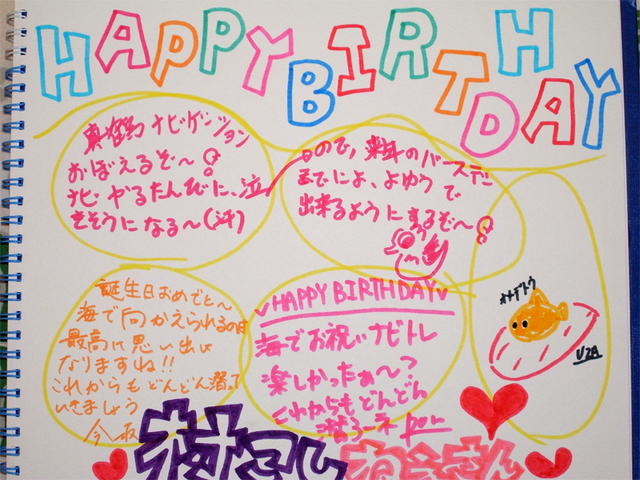 HAPPY BIRTHDAY
真鶴ナビゲーション
おぼえるぞ〜!
ナビやるたんびに、泣
きそうになる〜(汗)
ので、来年のバースデー
までには、よゆうで
出来るようにするぞ〜!
誕生日おめでと〜
海で向かえられるのは
最高に思い出に
なりますね!!
これからもどんどん潜って
いきましょう
HAPPY BIRTHDAY
海でお祝いナビトレ
楽しかったぁ〜?
これからもどんどん
潜ろーネ
オメデトウ